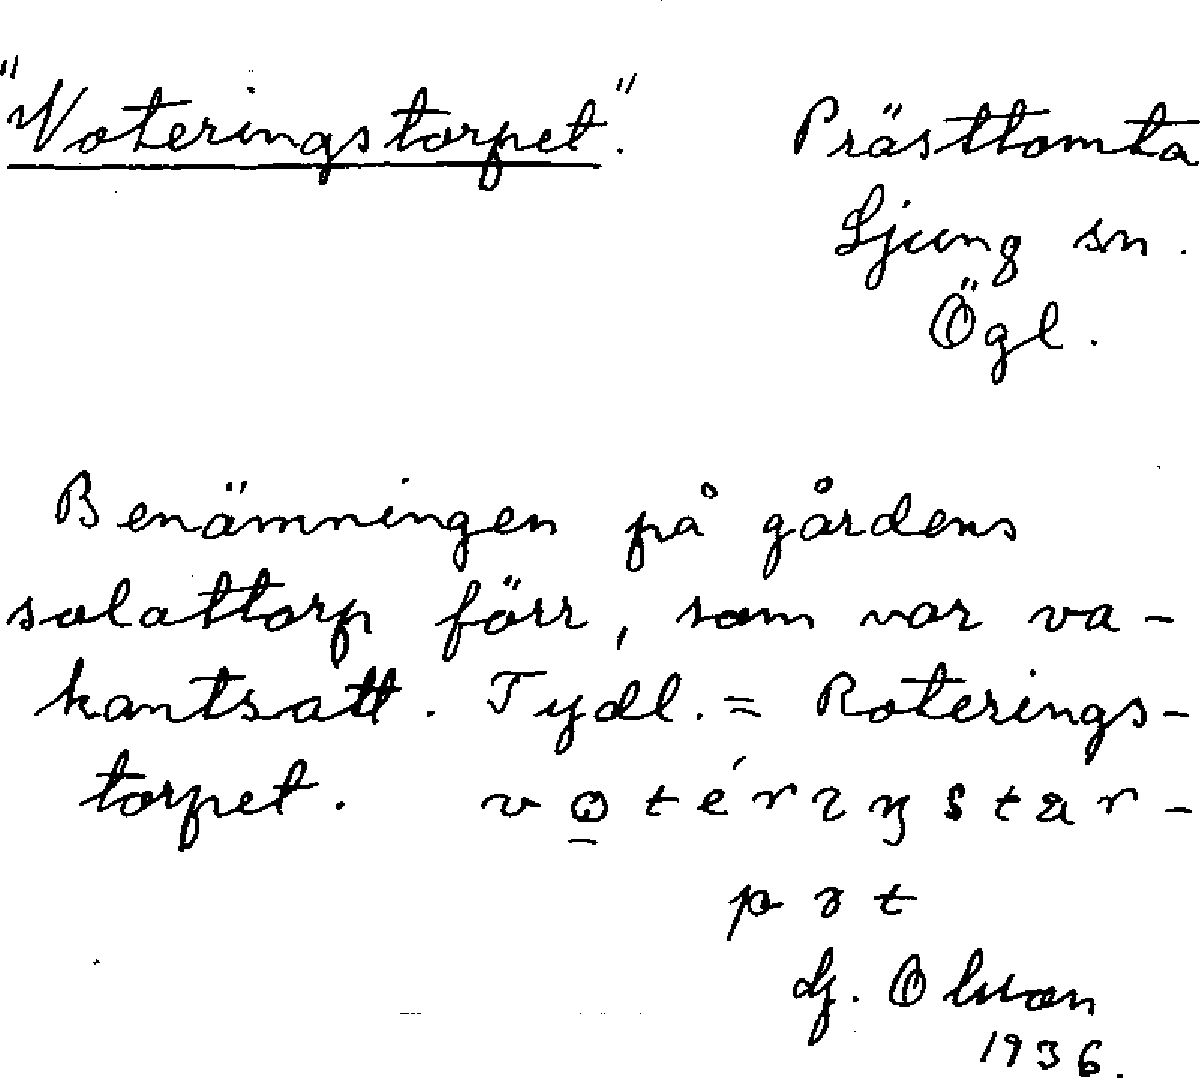 "Voteringstorpet". Prästtomta
Ljung sn.
Ögl.
Benämningen på gårdens
solattorp förr, som var va-
kantsatt. Tydl. = Roterings-
torpet.
G. Olson
1936.